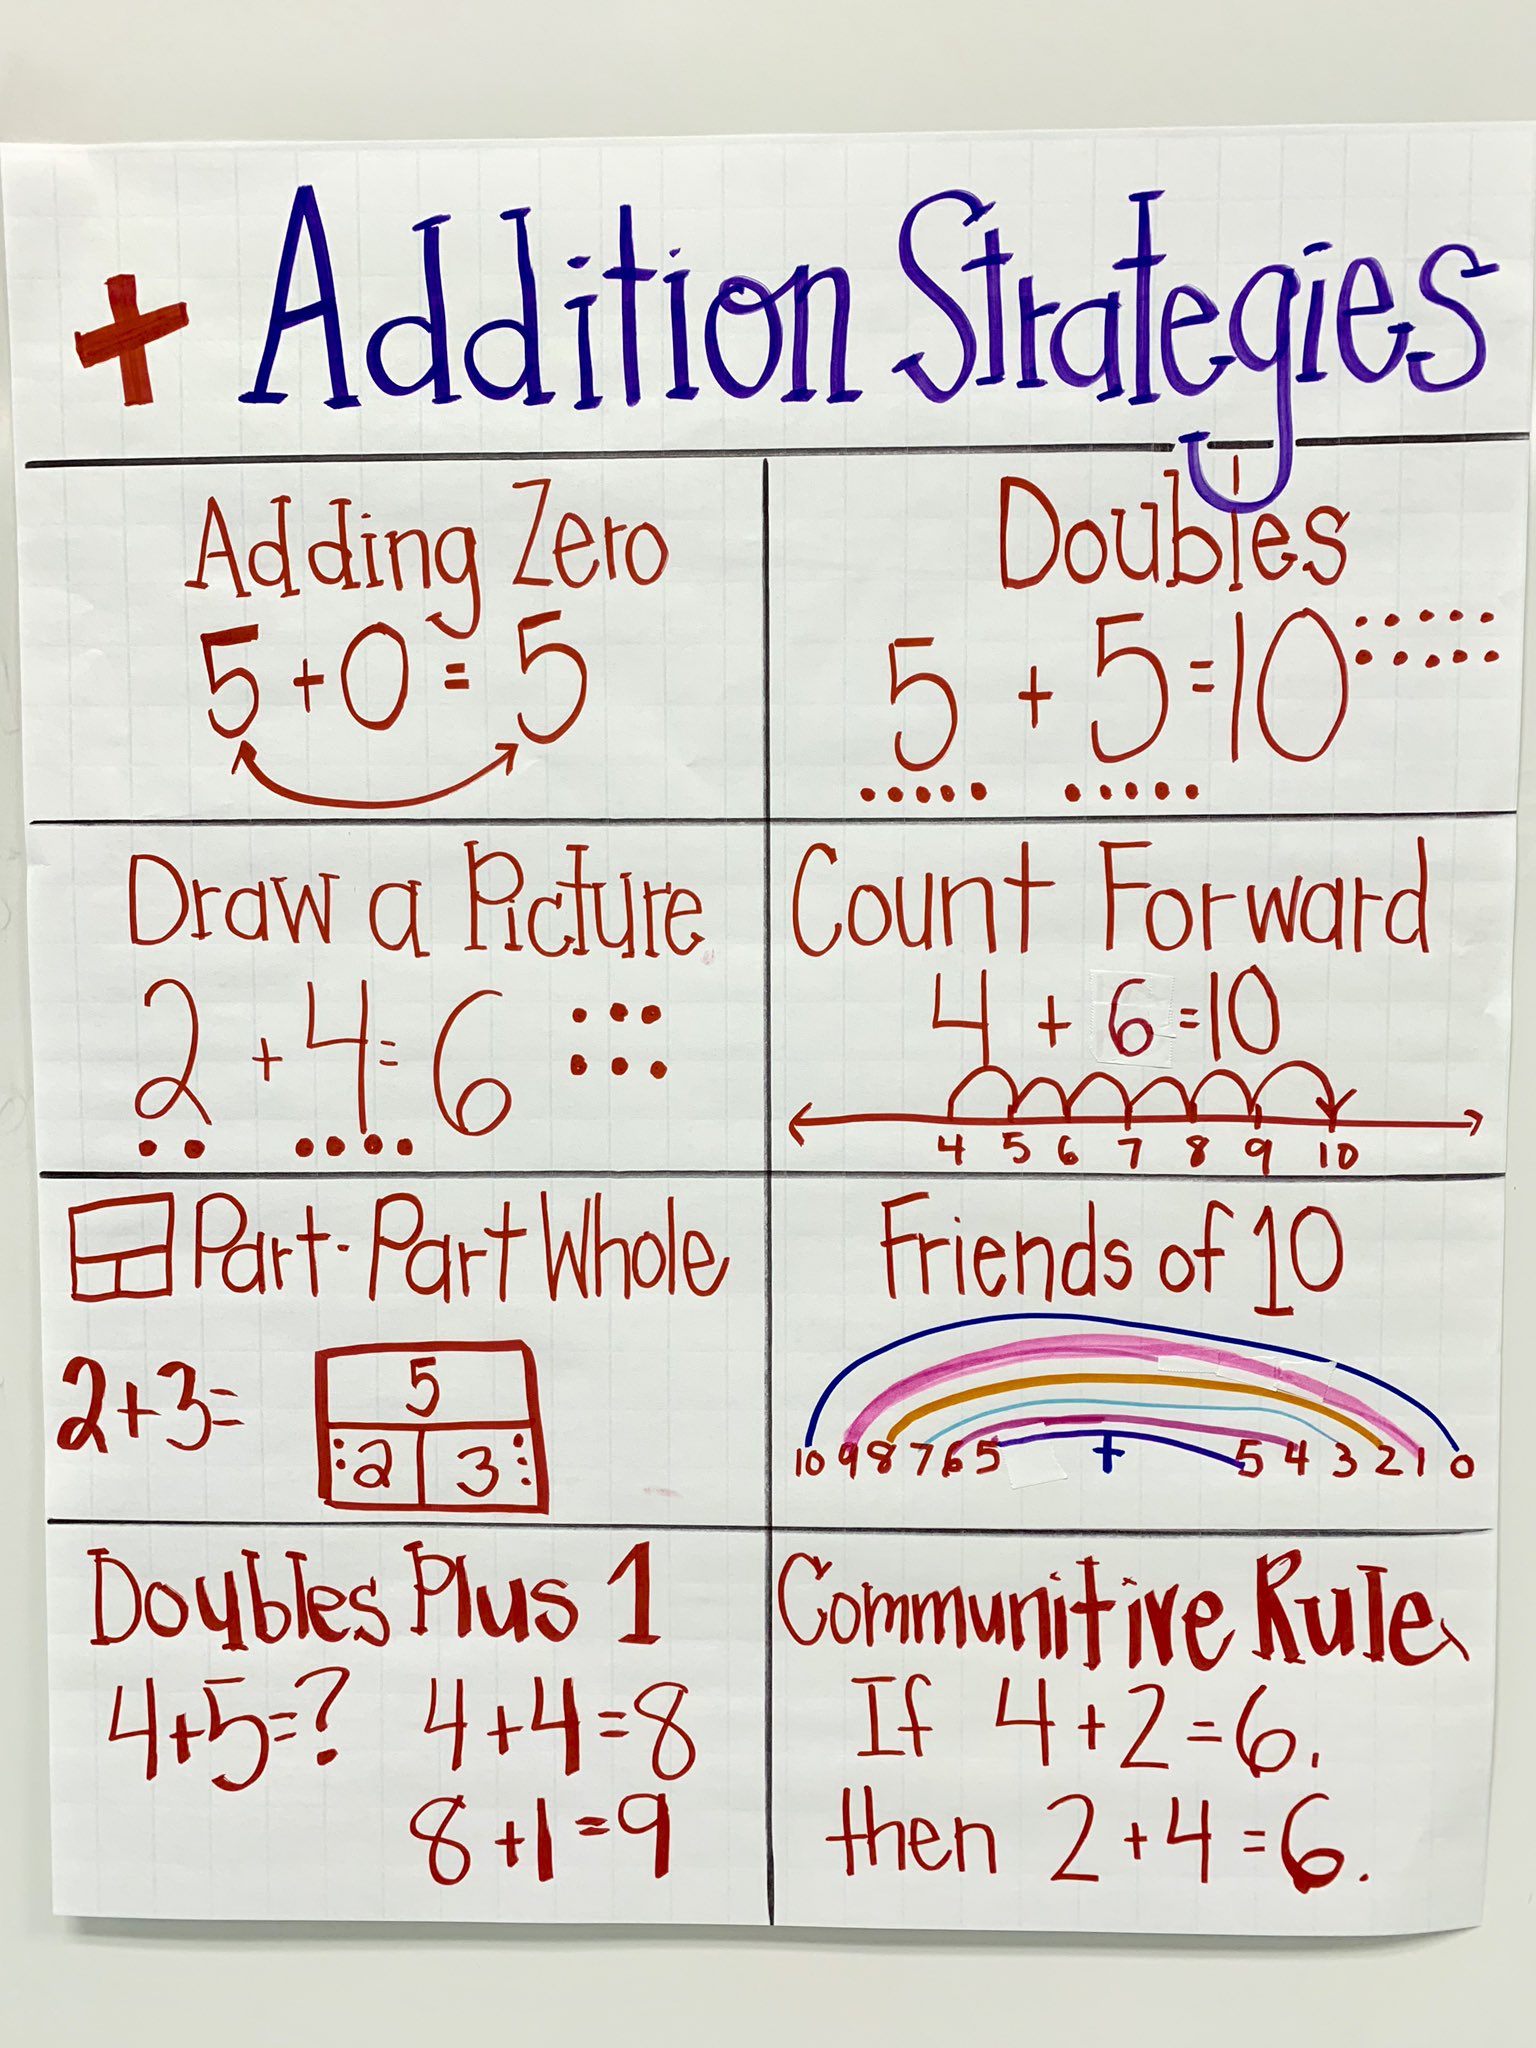 + Addition Strategies
Adding Zero
5 + 0 = 5
Doubles
5 + 5 = 10
Draw a Picture
2 + 4 = 6
Count Forward
4 + 6 = 10
4 5 6 7 8 9 10
Part-Part Whole
2+3=
5
2 3
Friends of 10
10 9 8 7 6 5 + 5 4 3 2 1 0
Doubles Plus 1
4+5=? 4+4=8
8+1=9
Communitive Rule
If 4+2=6.
then 2+4=6.